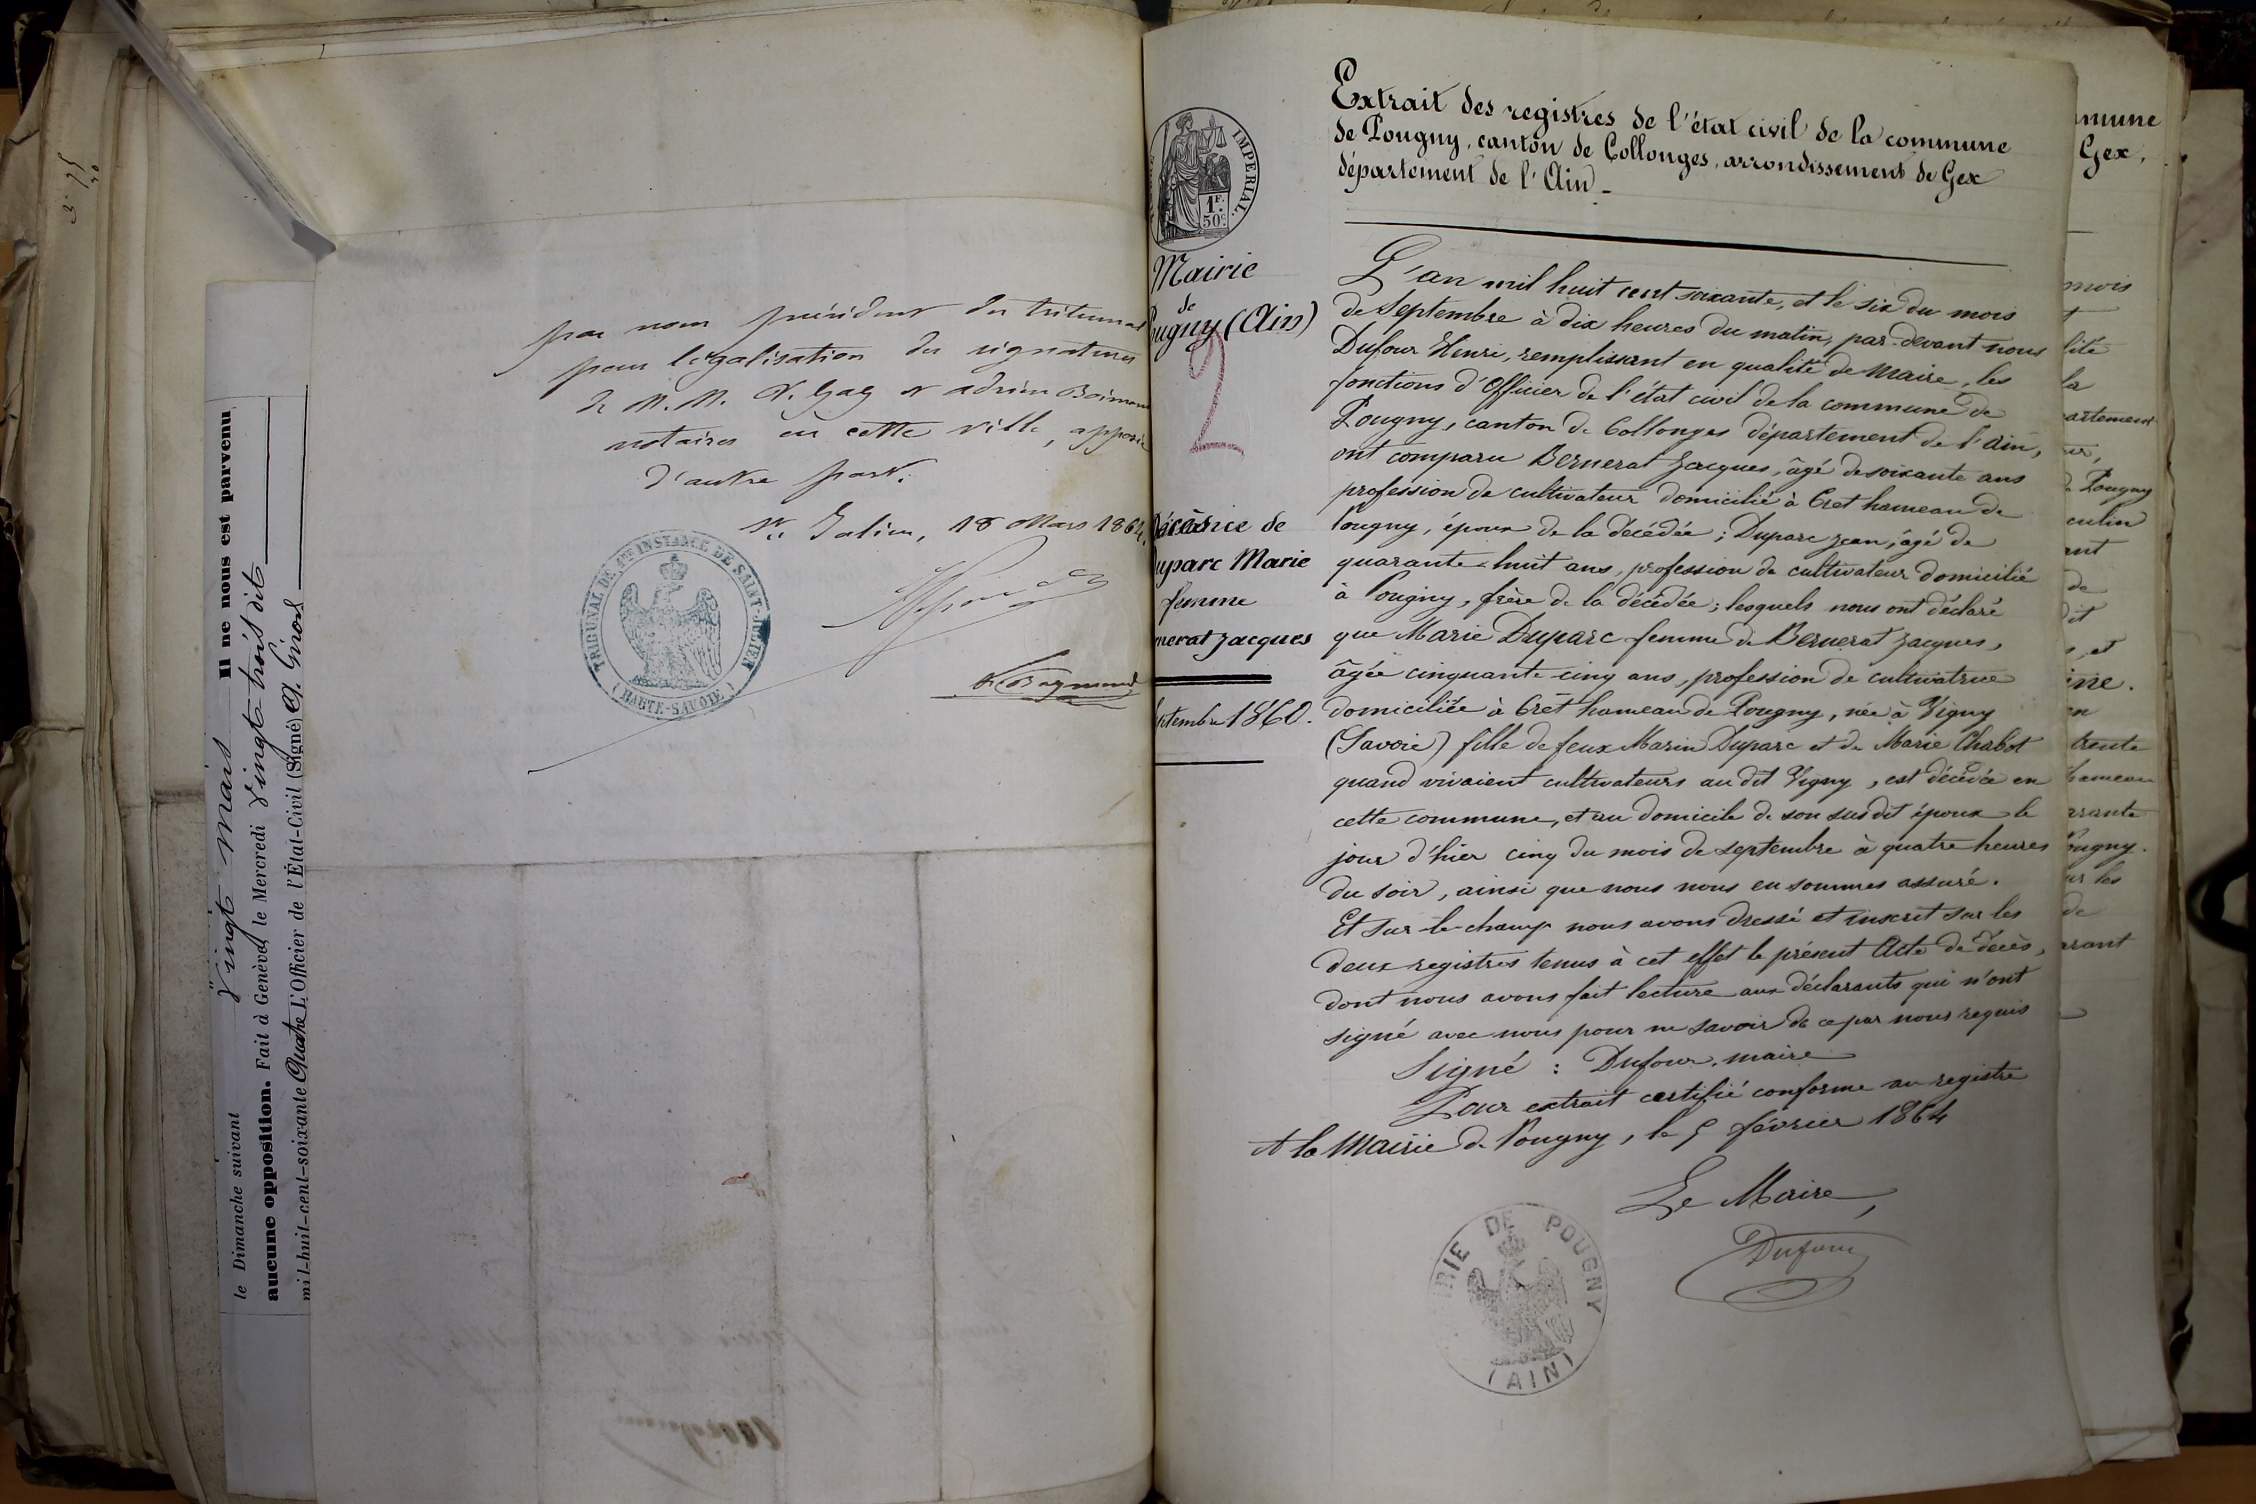 le Dimanche suivant Vingt Mars Il ne nous est parvenu
aucune opposition. Fait à Genève, le Mercredi Vingt trois dit
mil-huit-cent-soixante Quatre L'Officier de l'État-Civil (Signé) A. Girod
par nous président du tribunal
pour légalisation des signatures
de M. M. Gay et adrien
notaires en cette ville, apposée
d'autre part.
St Julien, 18 Mars 1864.
TRIBUNAL DE 1ère INSTANCE DE SAINT-JULIEN
(HAUTE-SAVOIE)
IMPERIAL.
1F.
50c.
Mairie
de
ougny (Ain)
2
Décès de
uparc Marie
femme
nerat Jacques
eptembre 1860.
Extrait des registres de l'état civil de la commune
de Pougny, canton de Collonges, arrondissement de Gex
département de l'Ain_
L'an mil huit cent soixante, et le six du mois
de Septembre à dix heures du matin, par-devant nous
Dufour Henri, remplissant en qualité de Maire, les
fonctions d'Officier de l'état civil de la commune de
Pougny, canton de Collonges département de l'Ain,
ont comparu Bernerat Jacques, âgé de soixante ans
profession de cultivateur domicilié à Cret hameau de
Pougny, époux de la décédée; Duparc Jean, âgé de
quarante-huit ans, profession de cultivateur domicilié
à Pougny, frère de la décédée; lesquels nous ont déclaré
que Marie Duparc femme de Bernerat Jacques,
âgée cinquante-cinq ans, profession de cultivatrice
domiciliée à Crêt hameau de Pougny, née à Vigny
(Savoie) fille de feux Marin Duparc et de Marie Chabot
quand vivaient cultivateurs au dit Vigny, est décédée en
cette commune, et au domicile de son susdit époux le
jour d'hier cinq du mois de septembre à quatre heures
du soir, ainsi que nous nous en sommes assuré.
Et sur-le-champ nous avons dressé et inscrit sur les
deux registres tenus à cet effet le présent Acte de décès,
dont nous avons fait lecture aux déclarants qui n'ont
signé avec nous pour ne savoir de ce par nous requis
Signé : Dufour, maire
Pour extrait certifié conforme au registre
A la Mairie de Pougny, le 5 février 1864
Le Maire,
Dufour
RIE DE POUGNY
(AIN)
mmune
Gex,
mois
lité
la
artement
Pougny
culin
ant
de
dit
et
ine.
en
trente
hameau
arante
ougny.
ur les
de
arant